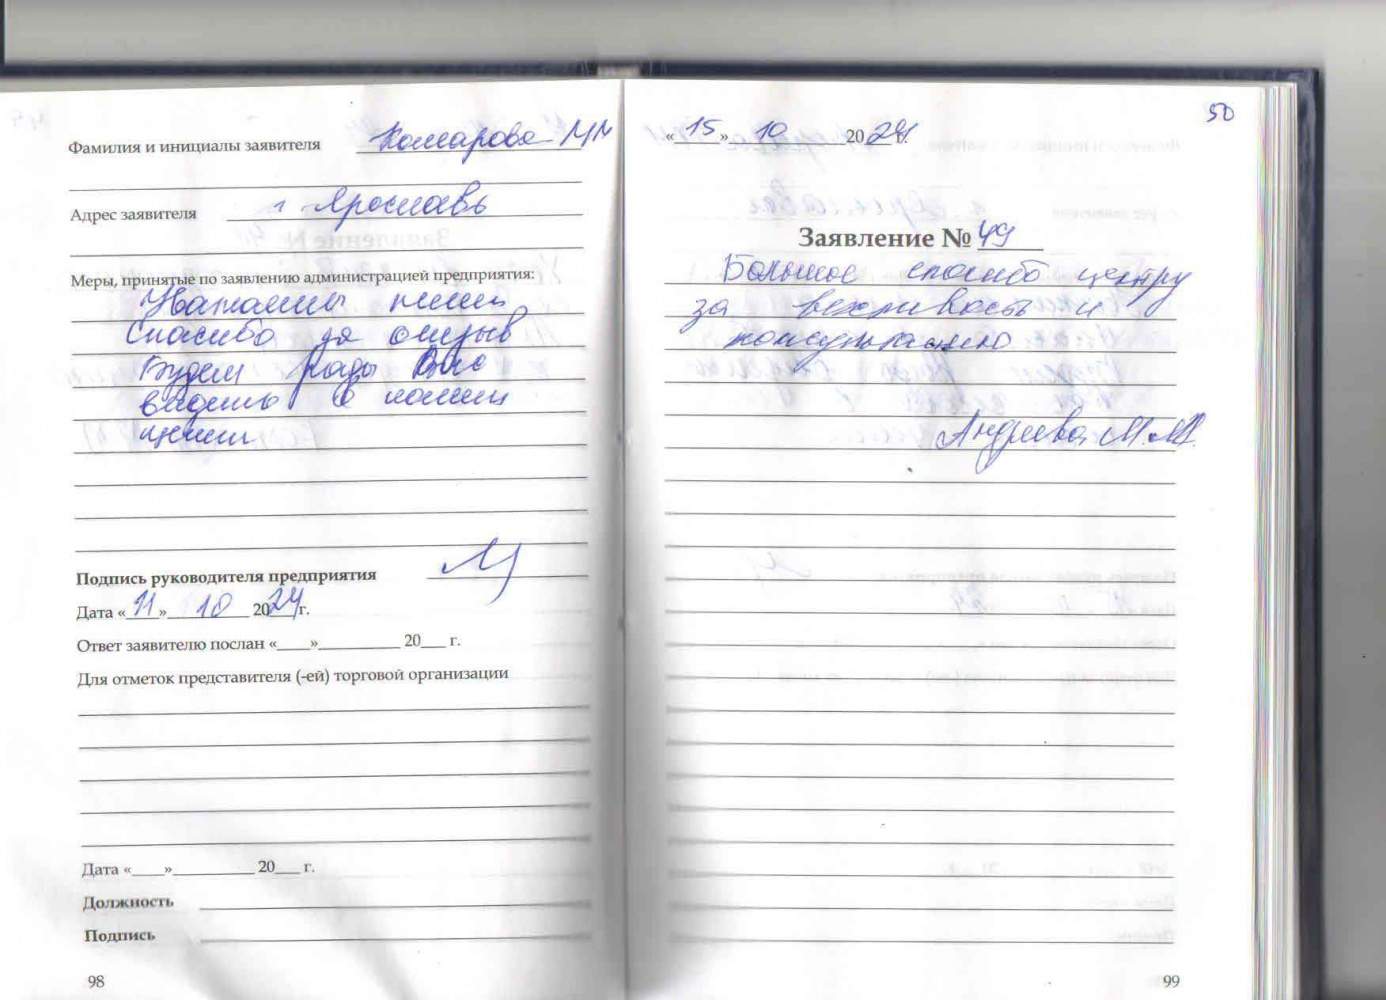 Фамилия и инициалы заявителя Комарова М М
Адрес заявителя г. Ярославь
Меры, принятые по заявлению администрацией предприятия:
Спасибо за отзыв
Будем рады Вас
видеть в нашем
Подпись руководителя предприятия
Дата «11» 10 2024 г.
Ответ заявителю послан «___»__________ 20___ г.
Для отметок представителя (-ей) торговой организации
Дата «___»__________ 20___ г.
Должность
Подпись
98
50
«15» 10 2024 г.
Заявление № 49
Большое спасибо центру
за вежливость и
консультацию
Андреева М.М.
99